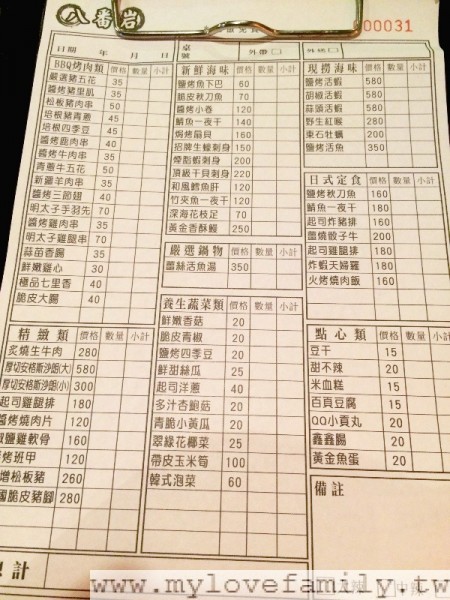 八番岩
00031
日期 年 月 日 桌號 外帶□ 外送□
BBQ烤肉類 價格 數量 小計
嚴選豬五花 35
醬烤豬里肌 35
松板豬肉串 50
培根豬青蔥 45
培根四季豆 45
醬烤鹿肉串 40
醬烤牛肉串 35
青蔥牛五花 50
新疆羊肉串 35
醬烤三節翅 40
明太子手羽先 70
醬烤雞肉串 35
明太子雞腿串 70
蒜苗香腸 35
鮮嫩雞心 30
極品七里香 40
脆皮大腸 40
精緻類 價格 數量 小計
炙燒生牛肉 280
厚切安格斯沙朗(大) 580
厚切安格斯沙朗(小) 300
起司雞腿排 180
醬烤燒肉片 120
鹽雞軟骨 160
烤班甲 160
松板豬 260
脆皮豬腳 280
計
新鮮海味 價格 數量 小計
鹽烤魚下巴 60
脆皮秋刀魚 70
醬烤小卷 120
鯖魚一夜干 140
焗烤扇貝 160
招牌生蠔刺身 150
煙脂蝦刺身 220
頂級干貝刺身 220
和風鱈魚肝 120
竹夾魚一夜干 120
深海花枝足 70
黃金香酥鰻 250
嚴選鍋物 價格 數量 小計
薑絲活魚湯 350
養生蔬菜類 價格 數量 小計
鮮嫩香菇 20
脆皮青椒 20
鹽烤四季豆 20
鮮甜絲瓜 25
起司洋蔥 40
多汁杏鮑菇 20
青脆小黃瓜 20
翠綠花椰菜 25
帶皮玉米筍 100
韓式泡菜 60
現撈海味 價格 數量 小計
鹽烤活蝦 580
胡椒活蝦 580
蒜頭活蝦 580
野生紅喉 280
東石牡蠣 200
鹽烤活魚 350
日式定食 價格 數量 小計
鹽烤秋刀魚 160
鯖魚一夜干 180
起司炸豬排 180
薑燒骰子牛 200
起司雞腿排 180
炸蝦天婦羅 180
火烤燒肉飯 160
點心類 價格 數量 小計
豆干 15
甜不辣 20
米血糕 15
百頁豆腐 15
QQ小貢丸 20
鑫鑫腸 20
黃金魚蛋 20
備註
中辣
www.mylovefamily.tw